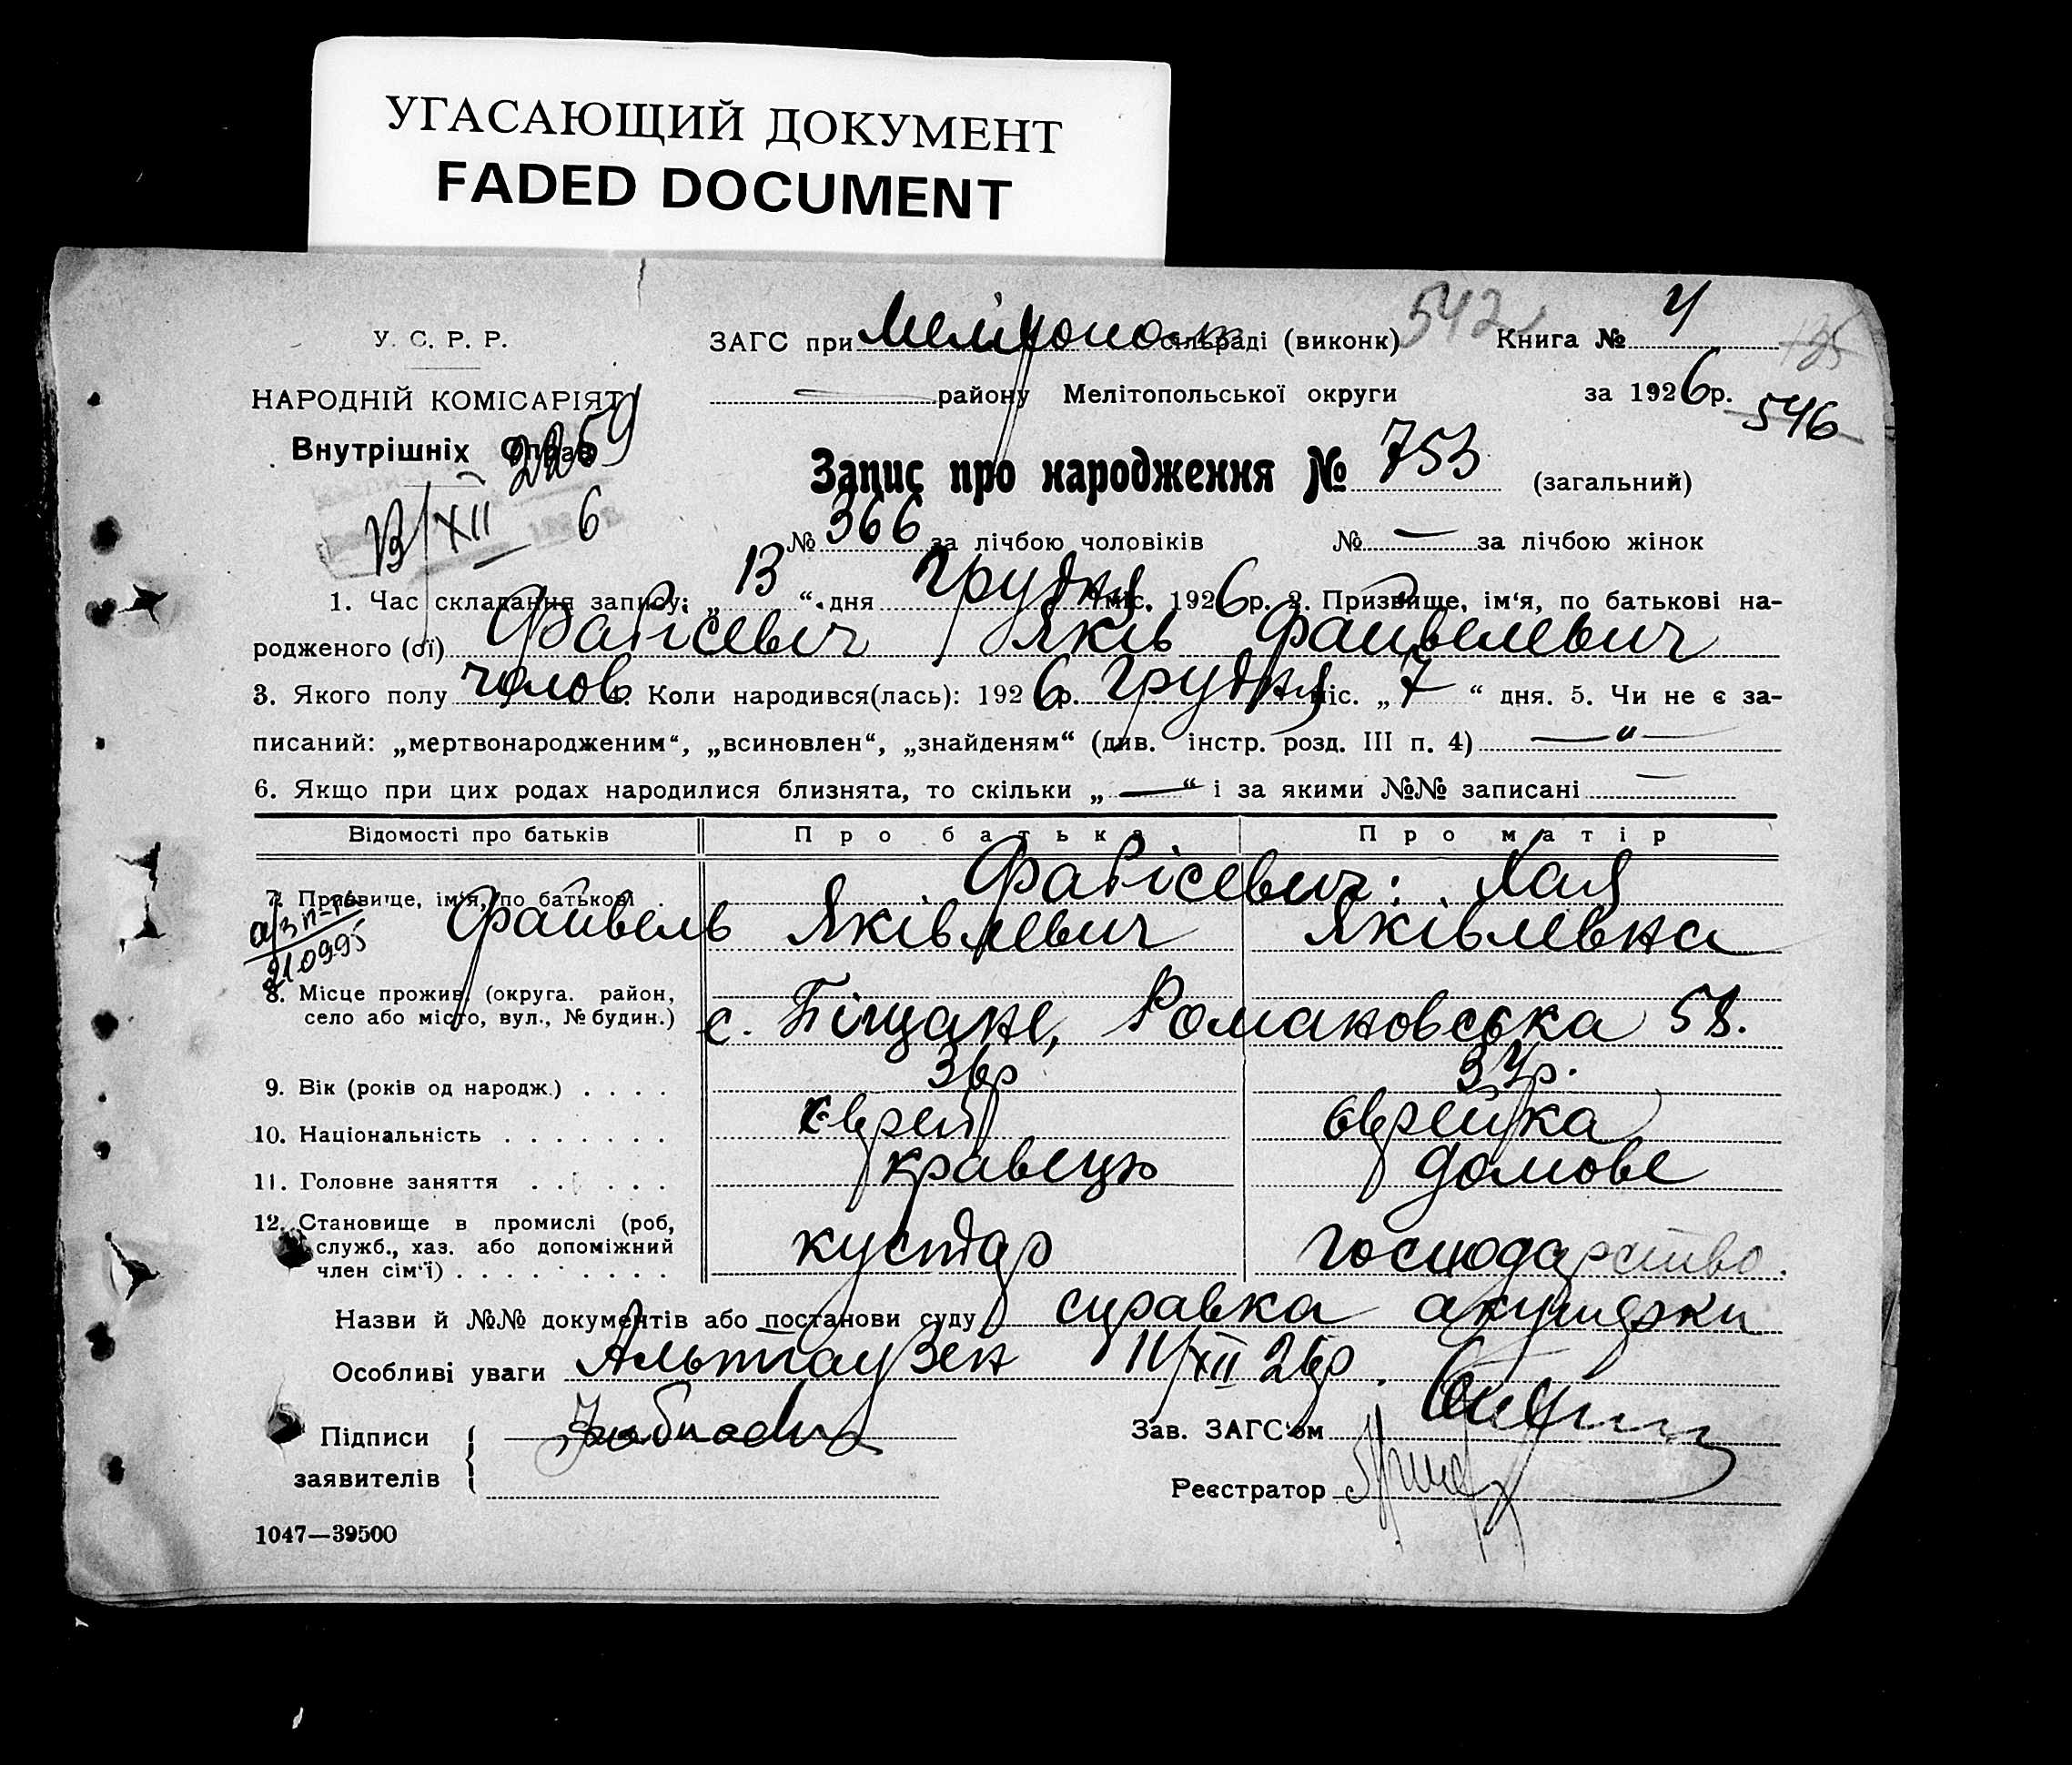 УГАСАЮЩИЙ ДОКУМЕНТ
FADED DOCUMENT
У. С. Р. Р.
НАРОДНІЙ КОМІСАРІЯТ
Внутрішніх Справ
2259
13/XII 6
ЗАГС при Мелітополь сільраді (виконк)
542
Книга № 4
125
району Мелітопольської округи
за 1926 р.
546
Запис про народження № 753 (загальний)
№ 366 за лічбою чоловіків № — за лічбою жінок
1. Час складання запису: „13“ дня грудня міс. 1926 р. 2. Призвище, ім‘я, по батькові на-
родженого (ої) Фабісевіч Яків Файвелевич
3. Якого полу чолов 4. Коли народився(лась): 1926 р. грудня міс. „7“ дня. 5. Чи не є за-
писаний: „мертвонародженим“, „всиновлен“, „знайденям“ (див. інстр. розд. III п. 4) — " —
6. Якщо при цих родах народилися близнята, то скільки „—“ і за якими №№ записані —
Відомості про батьків Про батька Про матір
7. Призвище, ім‘я, по батькові . Фабісевич: Хая
Файвель Яківлевич Яківлевна
а/з п-ть
210995
8. Місце прожив. (округа. район,
село або місто, вул., № будин.) с. Піщане, Романовська 58.
9. Вік (років од народж.) . . . . 36р 34р.
10. Національність . . . . . . . Єврей Єврейка
11. Головне заняття . . . . . . кравець домове
12. Становище в промислі (роб,
служб., хаз. або допоміжний
член сім‘ї) . . . . . . . . . кустар господарство.
Назви й №№ документів або постанови суду справка акушерки
Особливі уваги Альтгаузен 11/XII 26р.
Підписи
заявителів
Зав. ЗАГС‘ом
Реєстратор
1047—39500